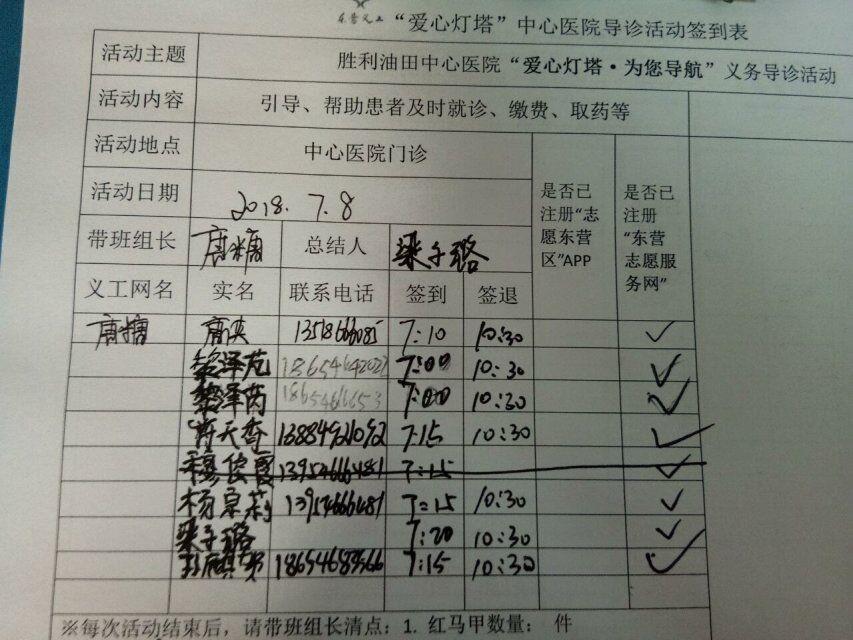 东营义工 “爱心灯塔”中心医院导诊活动签到表
活动主题 胜利油田中心医院“爱心灯塔·为您导航”义务导诊活动
活动内容 引导、帮助患者及时就诊、缴费、取药等
活动地点 中心医院门诊
活动日期 2018.7.8
是否已注册“志愿东营区”APP
是否已注册“东营志愿服务网”
带班组长 唐糖 总结人 梁子璐
义工网名 实名 联系电话 签到 签退
唐糖 唐 13518666085 7:10 10:30 ✓
黎泽苑 18654642022 7:00 10:30 ✓
黎泽芮 7:00 10:30 ✓
天香 13884921092 7:15 10:30 ✓
穆俊霞 13954666481 7:15 ✓
杨京莉 13954666481 7:15 10:30 ✓
梁子璐 7:20 10:30 ✓
7:15 10:30 ✓
※每次活动结束后，请带班组长清点：1. 红马甲数量： 件